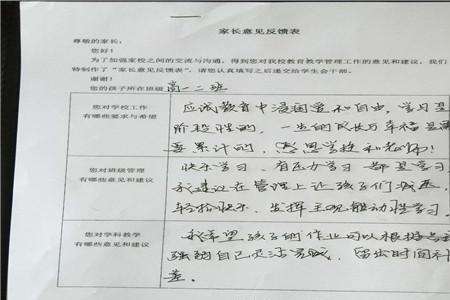 家长意见反馈表
尊敬的家长:
您好!
为了加强家校之间的交流与沟通,得到您对我校教育教学管理工作的意见和建议,我们
特制作了“家长意见反馈表”,请您认真填写之后递交给学生会干部。
谢谢!
您的孩子所在班级 高一二班
您对学校工作
有哪些要求与希望
应试教育中浸润爱和自由,学习是
阶段性的,一生的成长与幸福是需
要累计的,感恩学校和老师!
您对班级管理
有哪些意见和建议
快乐学习,有压力学习都是学习
我建议在管理上让孩子们减压,
轻松快乐,发挥主观能动性学习
您对学科教学
有哪些意见和建议
我希望孩子的作业可以根据
强弱自己灵活完成,留出时间补
差。